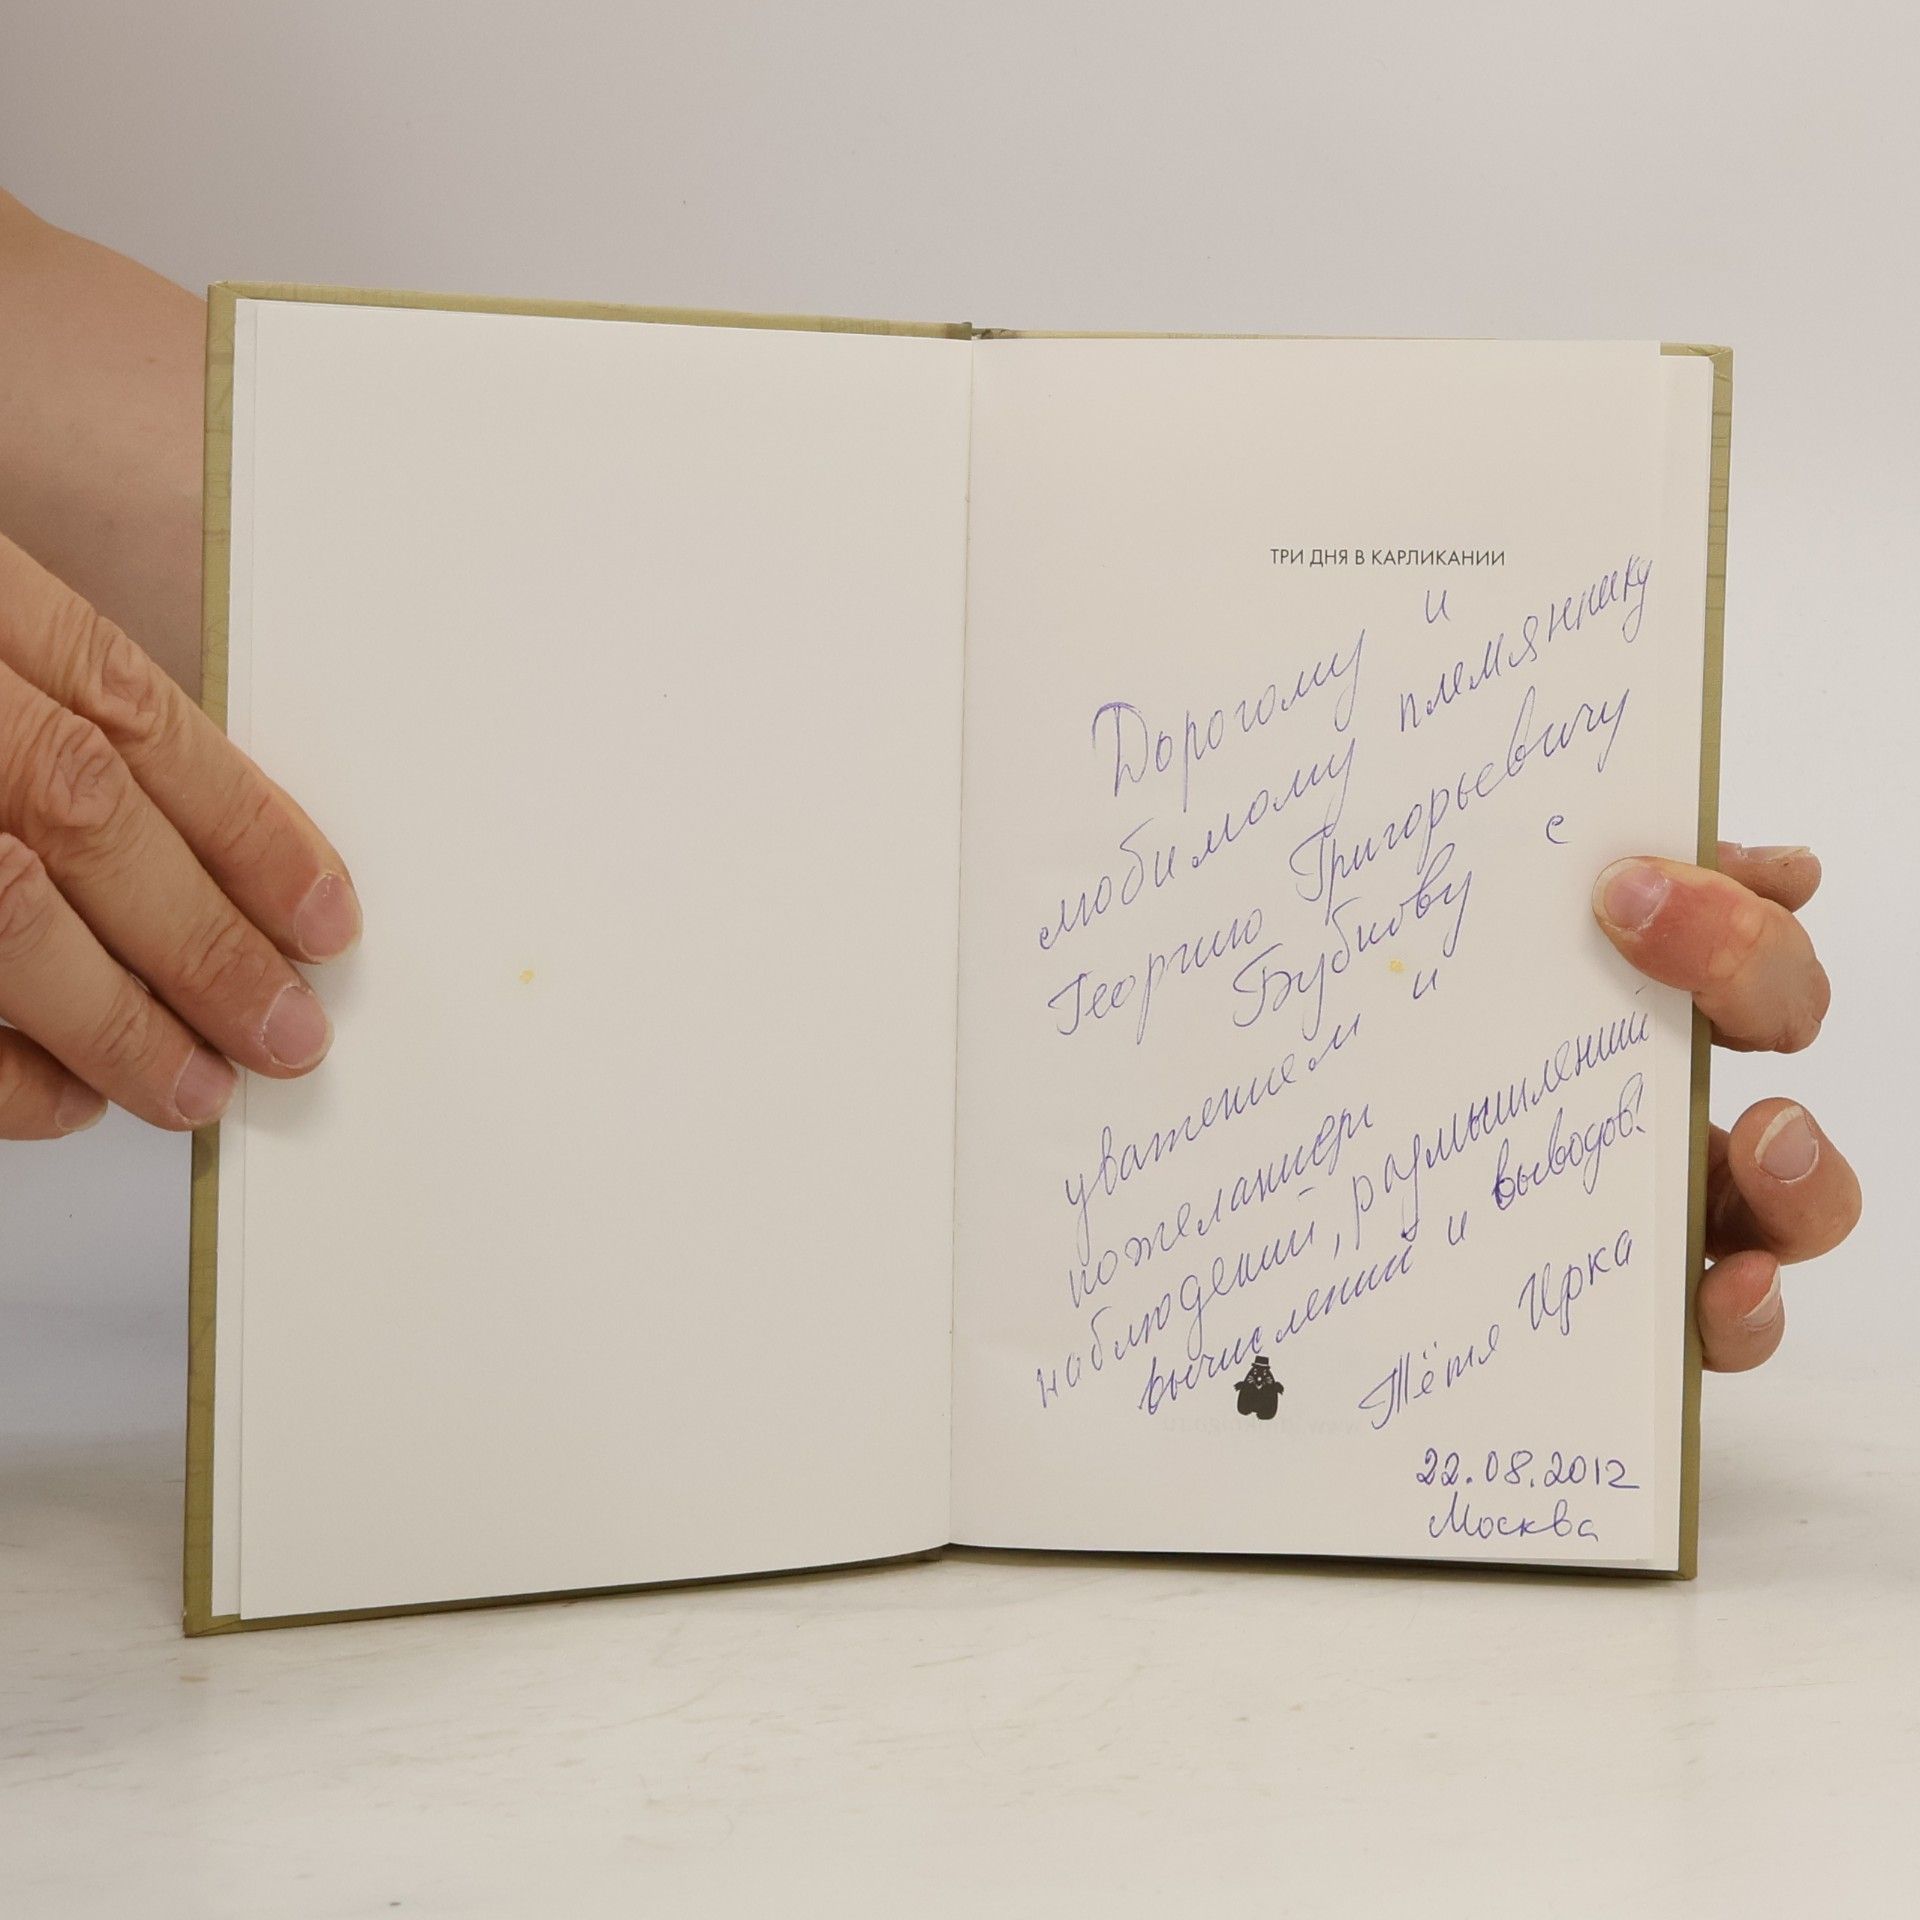 ТРИ ДНЯ В КАРЛИКАНИИ
Дорогому и
любимому племяннику
Георгию Григорьевичу
Бубнову с
уважением и
пожеланием
наблюдений, размышлений
вычислений и выводов!
Тётя Ирка
22.08.2012
Москва